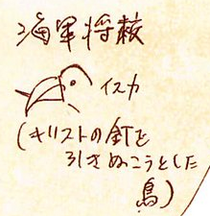 海軍将校
イスカ
(キリストの釘を
引きぬこうとした
鳥)